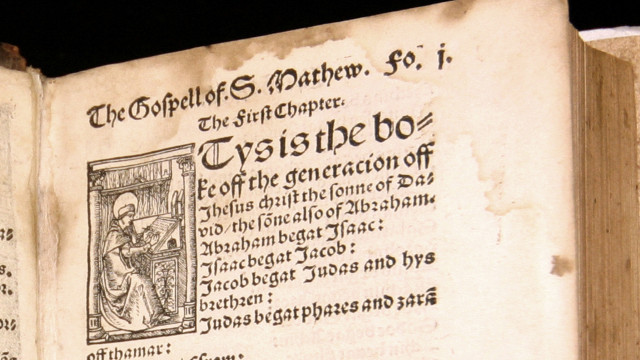 The Gospell of. S. Mathew. Fo. j.
The First Chapter.
Tys is the bo⸗
ke off the generacion off
Jhesus christ the sonne of Da⸗
vid / the sõne also of Abraham.
Abraham begat Isaac:
Isaac begat Jacob:
Jacob begat Judas and hys
brethren:
Judas begat phares and zarã
off thamar: